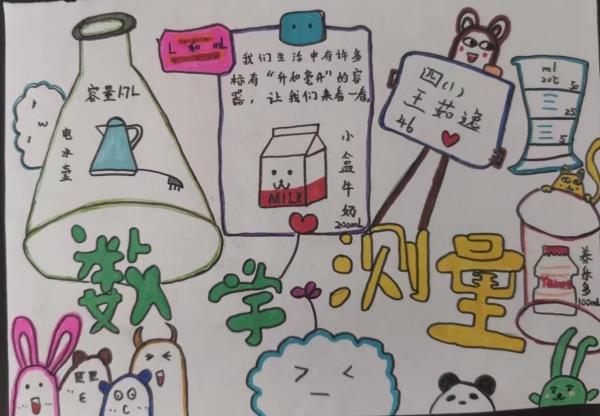 L 和 mL
我们生活中有许多
标有“升和毫升”的容
器，让我们来看一看。
容量1.7L
电水壶
小盒牛奶
200mL
MILK
四(1)
王茹逸
46
ml
20℃
50
25
5
养乐多
100mL
Yakult
数学测量